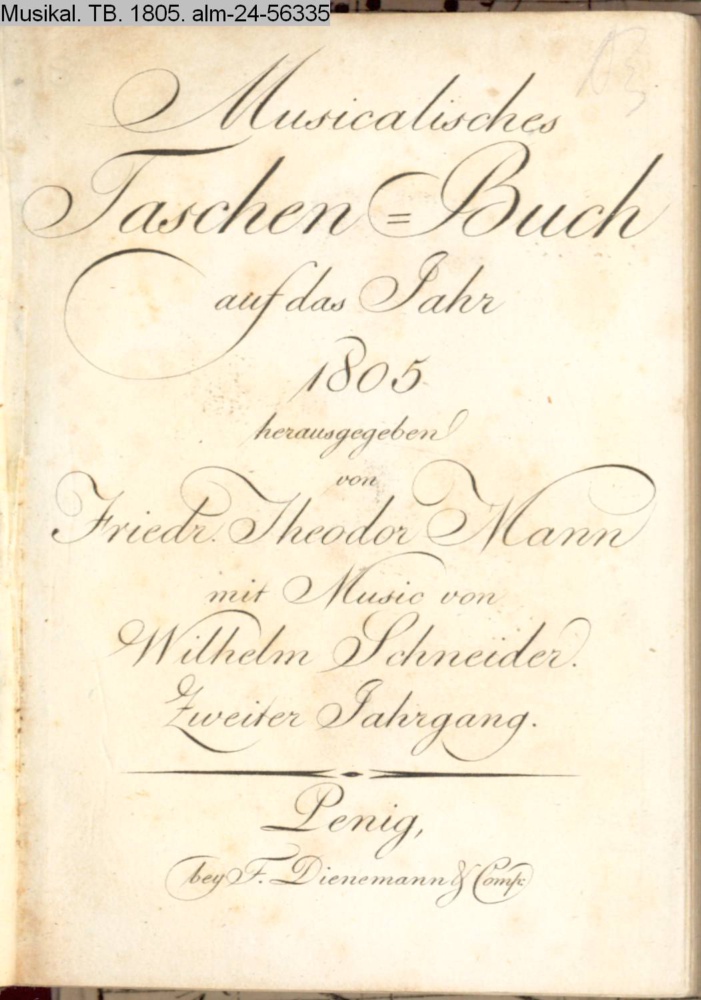 Musikal. TB. 1805. alm-24-56335
Musicalisches
Taschen=Buch
auf das Jahr
1805
herausgegeben
von
Friedr. Theodor Mann
mit Music von
Wilhelm Schneider.
Zweiter Jahrgang.
Penig,
bey F. Dienemann & Comp.